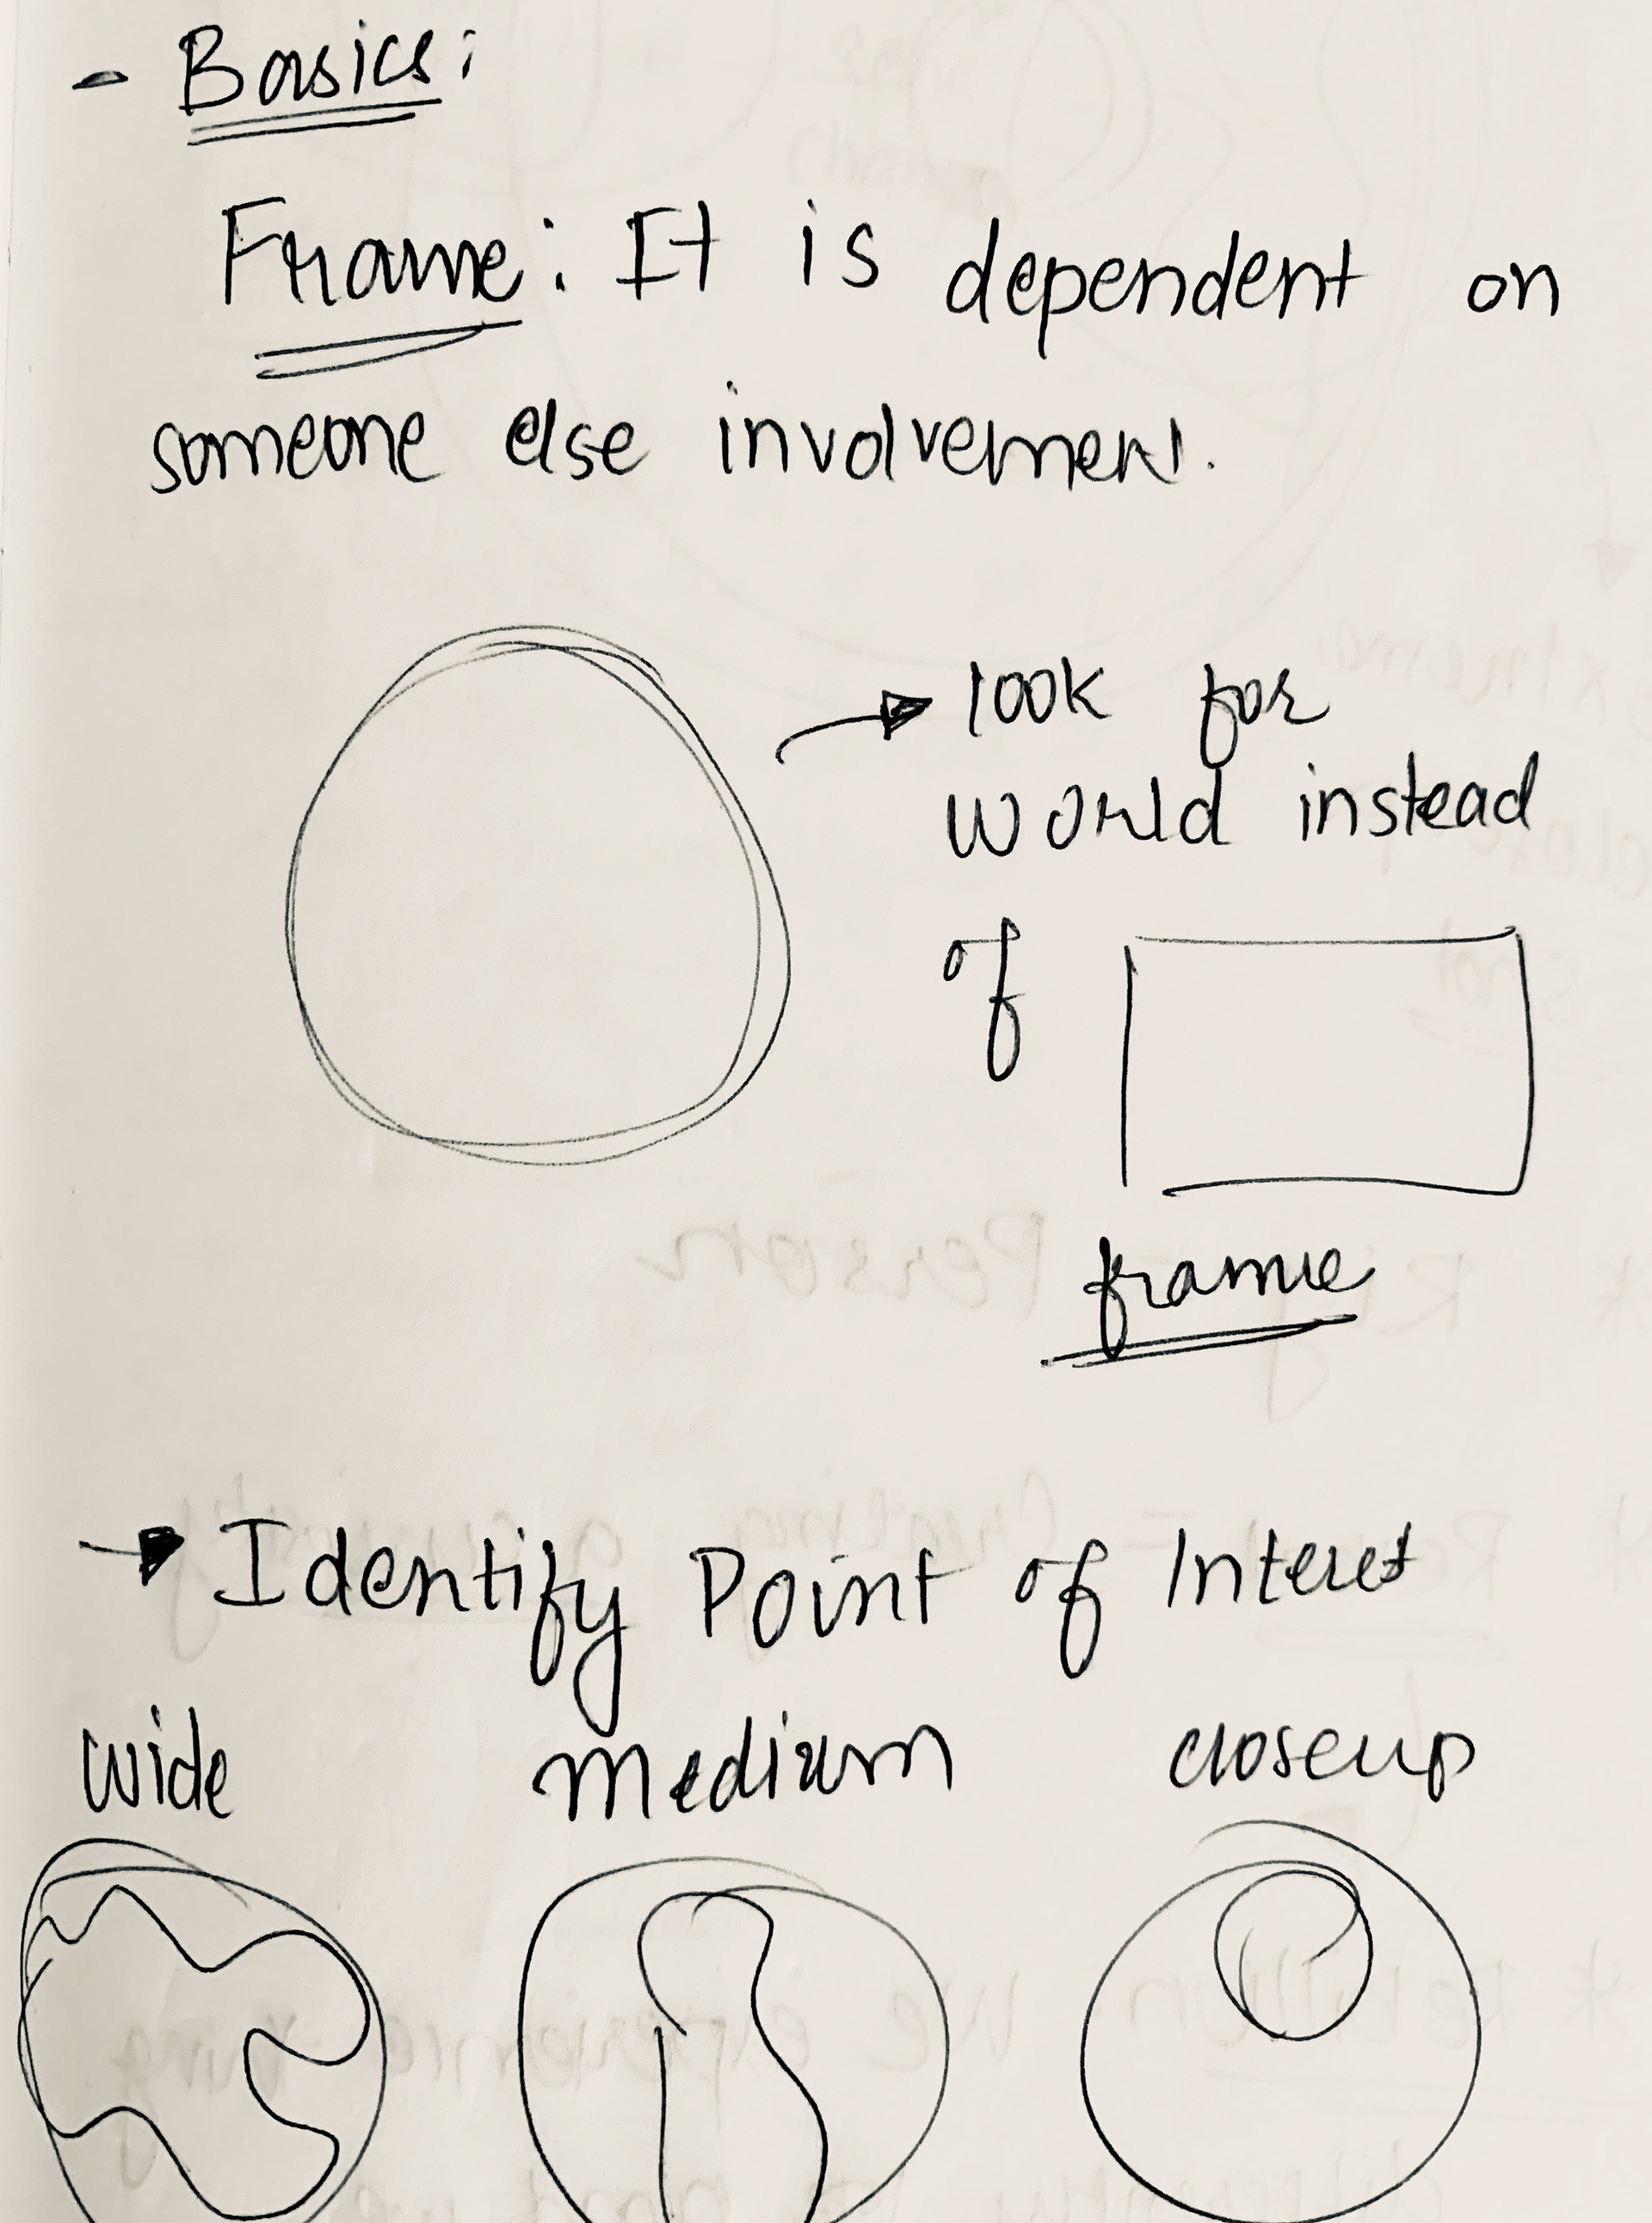 - Basics:
Frame: It is dependent on
someone else involvement.
look for
world instead
of
frame
Identify Point of Interest
wide medium closeup